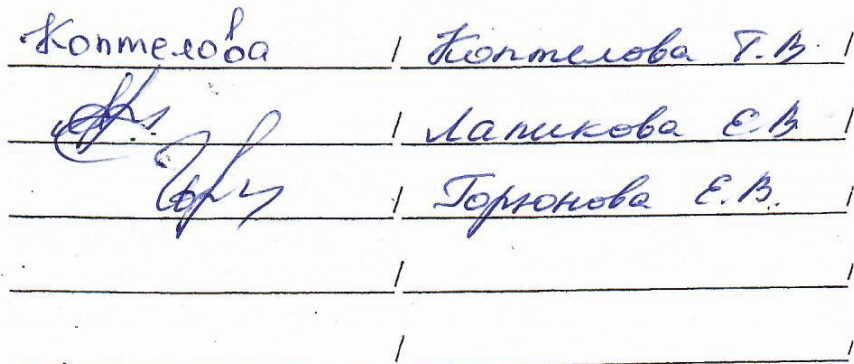 Коптелова / Коптелова Т.В. /
/ Лапикова Е.В /
/ Горюнова Е.В. /
/ /
/ /